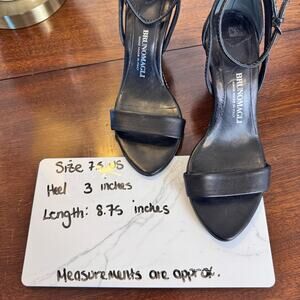 BRUNOMAGLI
BRUNOMAGLI
Size 7.5 US
Heel 3 inches
Length: 8.75 inches
Measurements are approx.